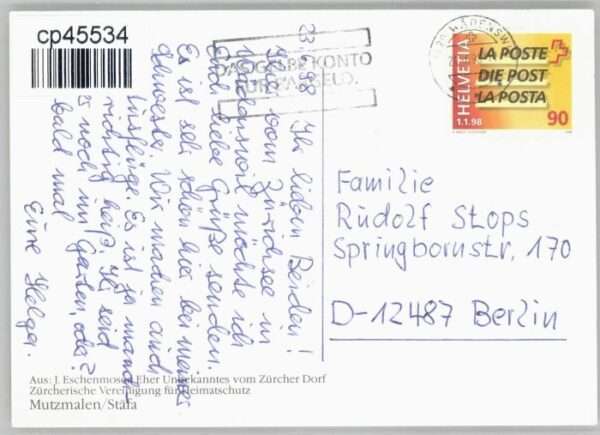 cp45534
23. 98
Ihr lieben Beiden!
Hier vom Zürichsee in
Wädenswil möchte ich
Euch liebe Grüße senden.
Es ist sehr schön hier bei meiner
Schwester. Wir machen auch
Ausflüge. Es ist ja manchmal
richtig heiß. Ihr seid
noch im Garten, oder?
bald mal
Eure Helga.
DAS GELBE KONTO
HELVETIA
1.1.98
LA POSTE
DIE POST
LA POSTA
90
Familie
Rudolf Stops
Springbornstr. 170
D-12487 Berlin
Aus: J. Eschenmoser, Eher Unbekanntes vom Zürcher Dorf
Zürcherische Vereinigung für Heimatschutz
Mutzmalen/Stäfa